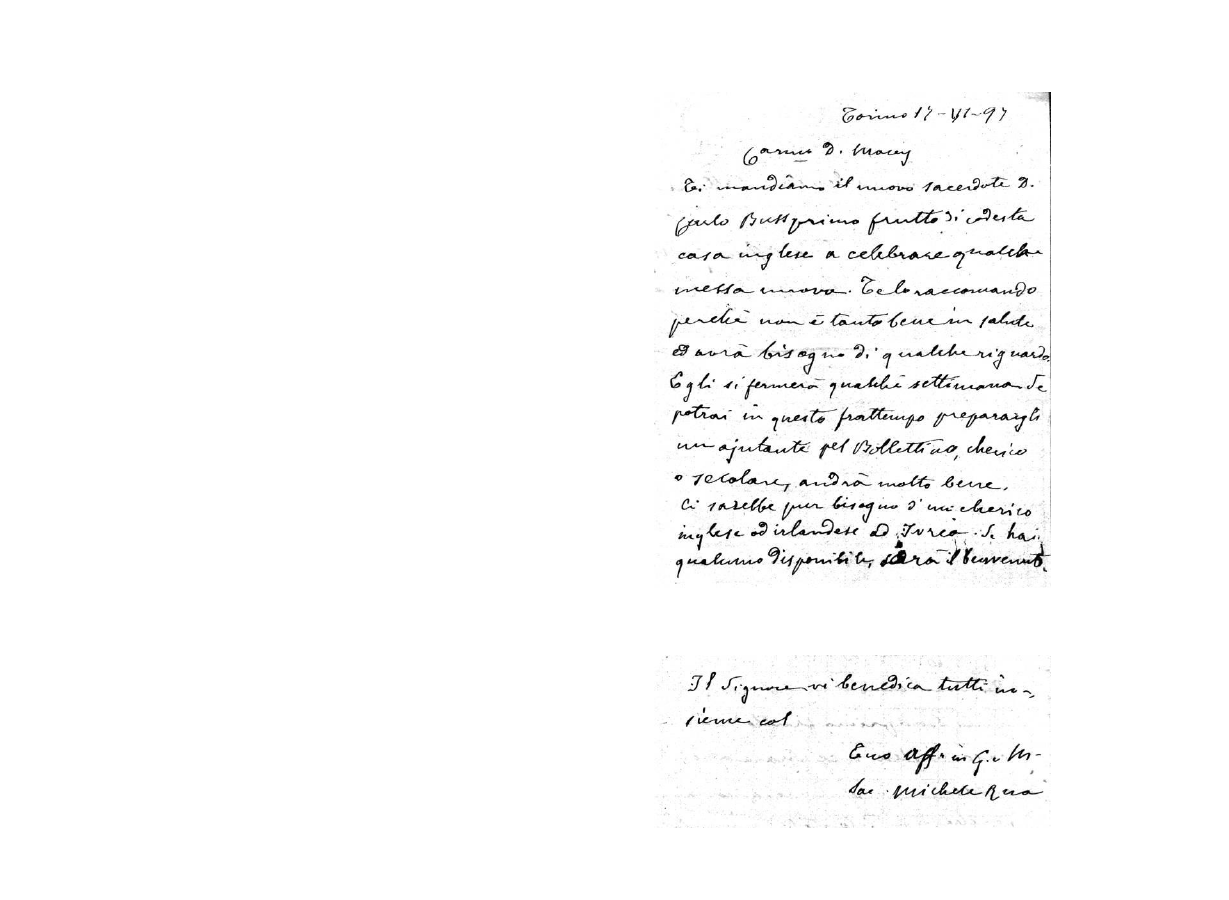 Torino 17-VI-97
Carmo D. Macey
Ti mandiamo il nuovo sacerdote D.
Carlo Buss primo frutto di codesta
casa inglese a celebrare qualche
messa nuova. Te lo raccomando
perchè non è tanto bene in salute
ed avrà bisogno di qualche riguardo.
Egli si fermerà qualche settimana. Se
potrai in questo frattempo preparargli
un ajutante pel Bollettino, cherico
o secolare, andrà molto bene.
Ci sarebbe pur bisogno d'un cherico
inglese od irlandese ad Ivrea. Se hai
qualcuno disponibile, sarà il benvenuto.
Il Signore vi benedica tutti in-
sieme col
Tuo Aff. in G. e M.
Sac. Michele Rua